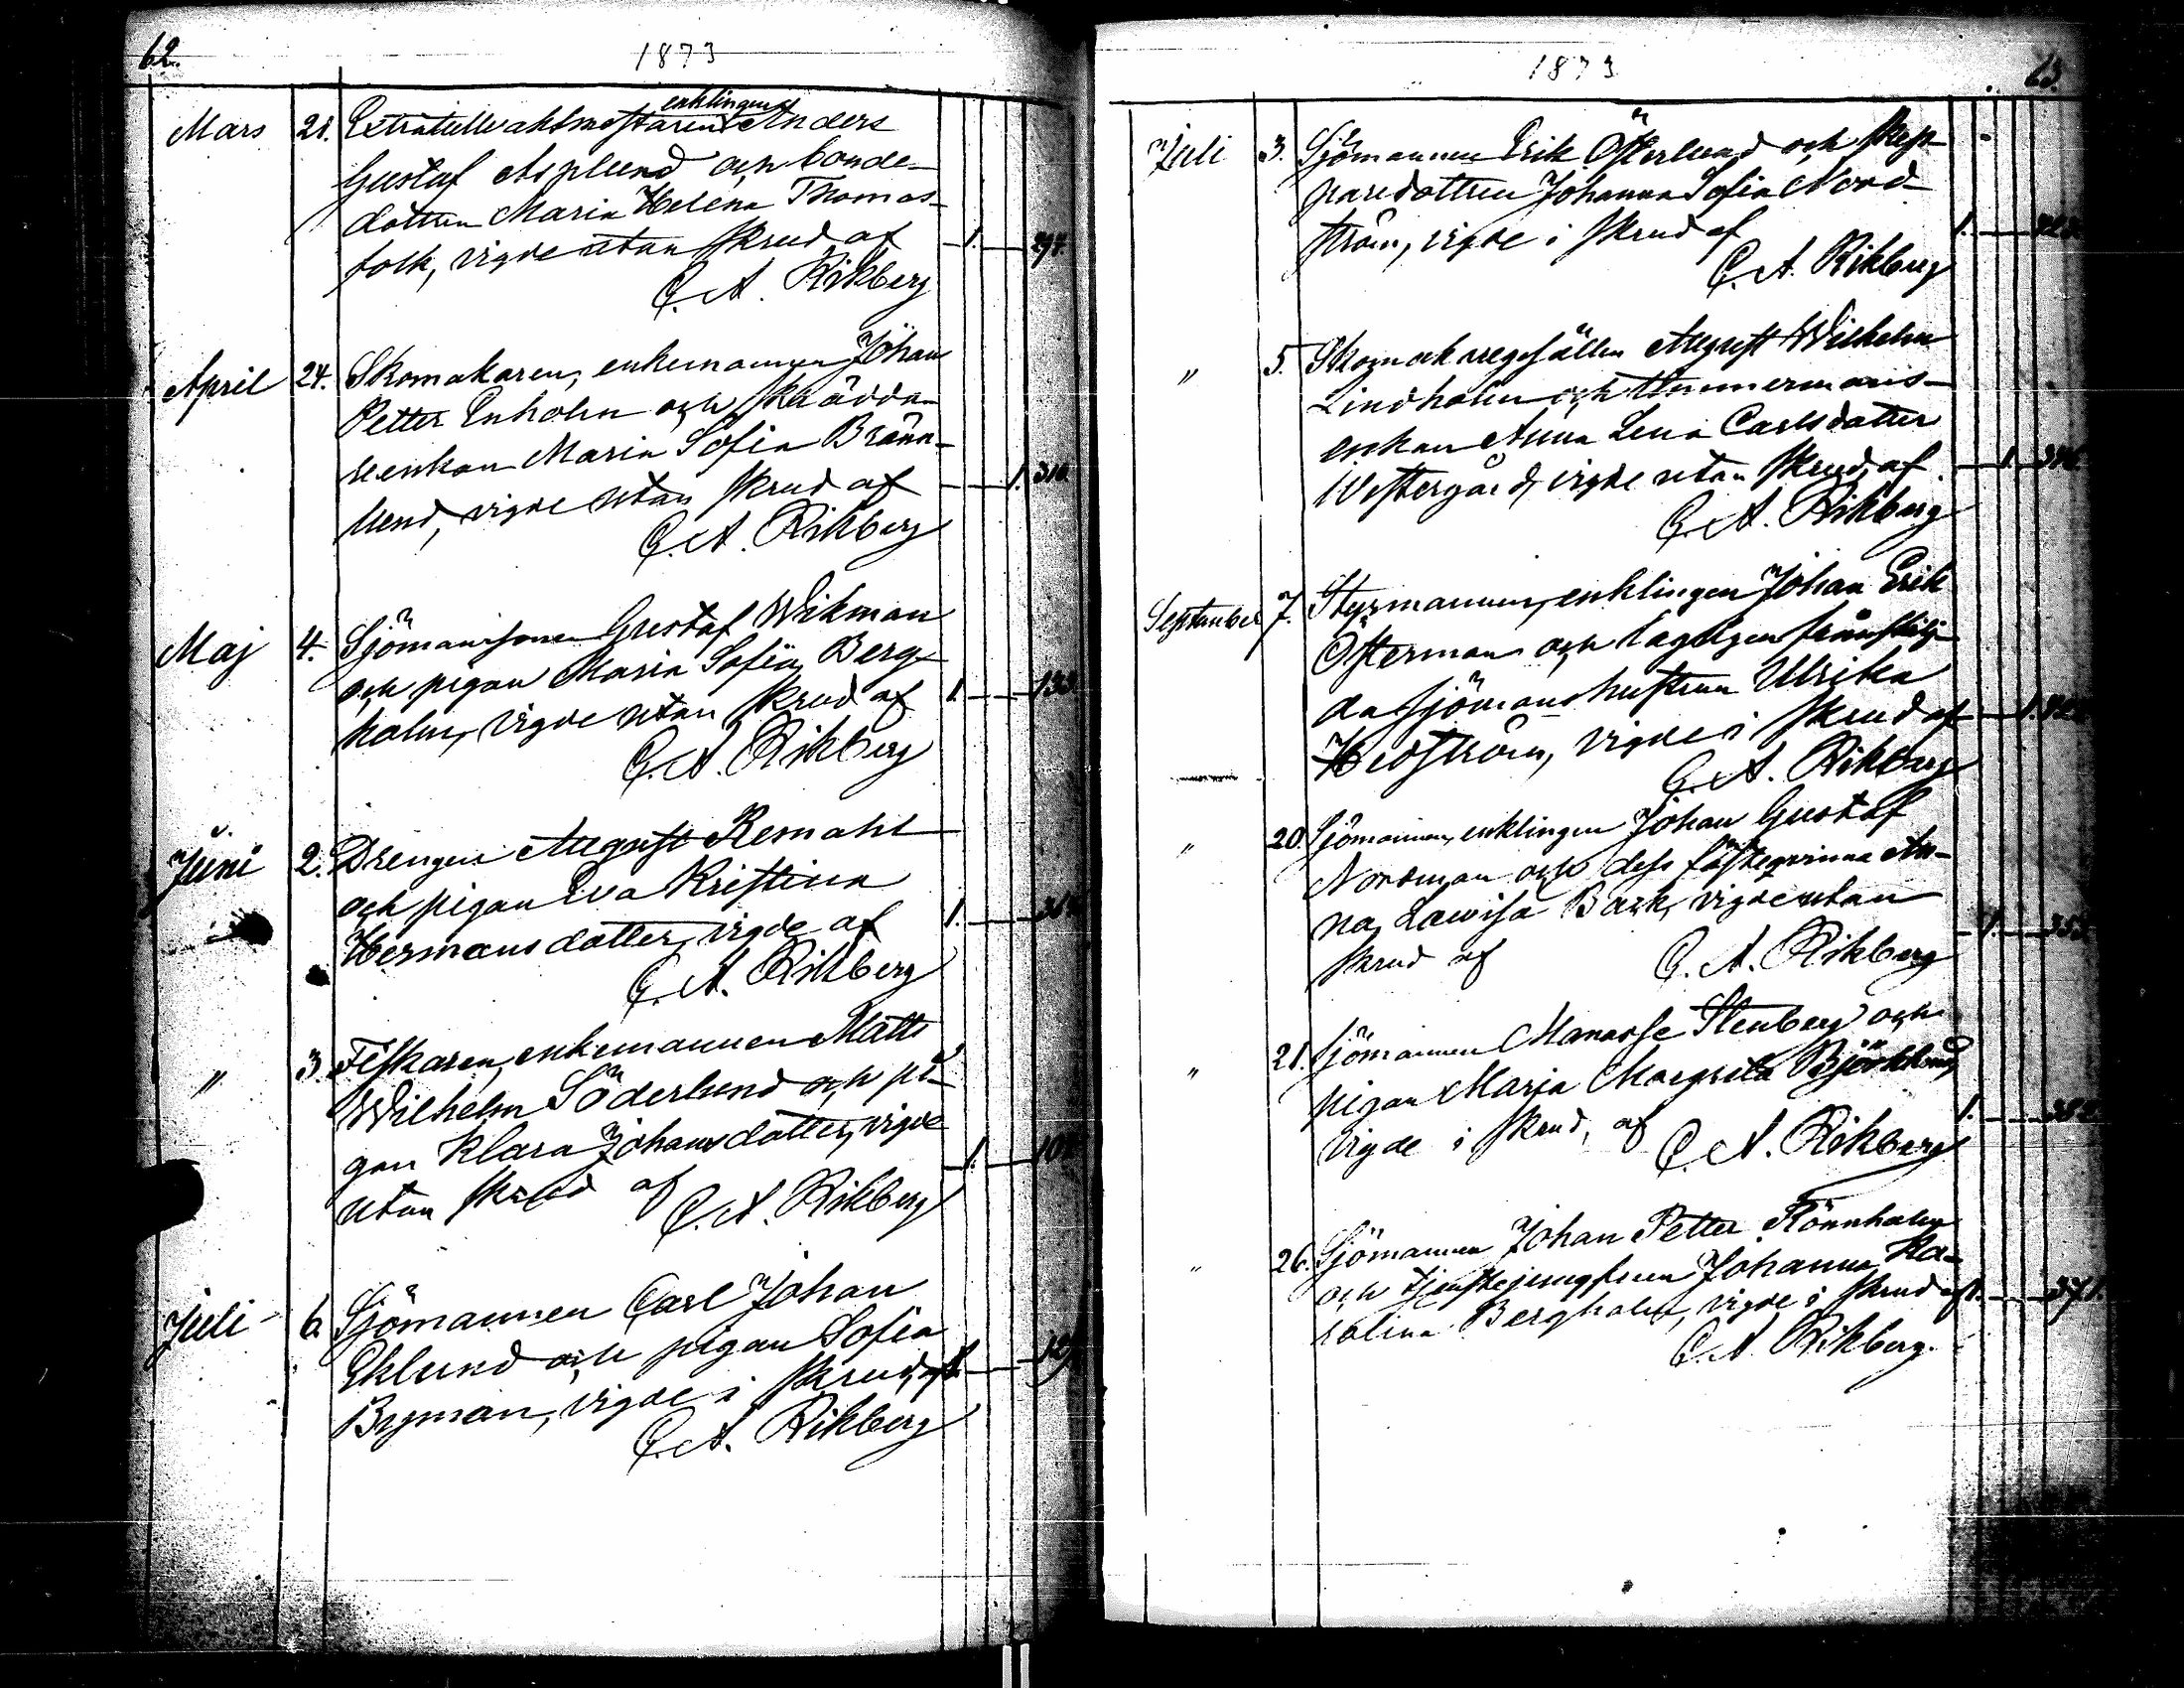 62.
1873
Mars 21. enklingen
Extratullvaktmestaren Anders
Gustaf Asplund och bonde-
dottren Maria Helena Thomas-
folk, vigde utan skrud af 1. 294.
C. A. Rikberg
April 24. Skomakaren, enkemannen Johan
Petter Enholm och skrädda-
reenkan Maria Sofia Bränn-
lund, vigde utan skrud af 1. 310.
C. A. Rikberg
Maj 4. Sjömansonen Gustaf Wikman
och pigan Maria Sofia Berg-
holm, vigde utan skrud af 1. 133
C. A. Rikberg
Juni 2. Drengen August Remahl
och pigan Eva Kristina
Hermansdotter, vigde af 1.
C. A. Rikberg
" 3. Fiskaren, enkemannen Matts
Wilhelm Söderlund och pi-
gan Klara Johansdotter, vigde
utan skrud af 1.
C. A. Rikberg
Juli 6. Sjömannen Carl Johan
Eklund och pigan Sofia
Byman, vigde i skrud, af 1.
C. A. Rikberg
1873
63.
Juli 3. Sjömannen Erik Österlund och skep-
paredottren Johanna Sofia Nord-
ström, vigde i skrud af 1.
C. A. Rikberg
" 5. Skomakaregesällen August Wilhelm
Lindholm och timmermans-
enkan Anna Lena Carlsdotter
Westergård, vigde utan skrud, af 1.
C. A. Rikberg
September 7. Styrmannen, enklingen Johan Erik
Österman och lagligen frånskilj-
da sjömanshustrun Ulrika
Hedström, vigde i skrud af 1.
C. A. Rikberg
" 20. Sjömannen, enklingen Johan Gustaf
Nordman och dess fästeqvinna An-
na Lawisa Back, vigde utan
skrud af 1. 353
C. A. Rikberg
" 21. Sjömannen Manasse Stenberg och
pigan Maria Margreta Björklund,
vigde i skrud, af 1.
C. A. Rikberg
" 26. Sjömannen Johan Petter Rönnholm
och tjenstejungfrun Johanna Ka-
rolina Bergholm, vigde i skrud af 1. 371.
C. A. Rikberg.